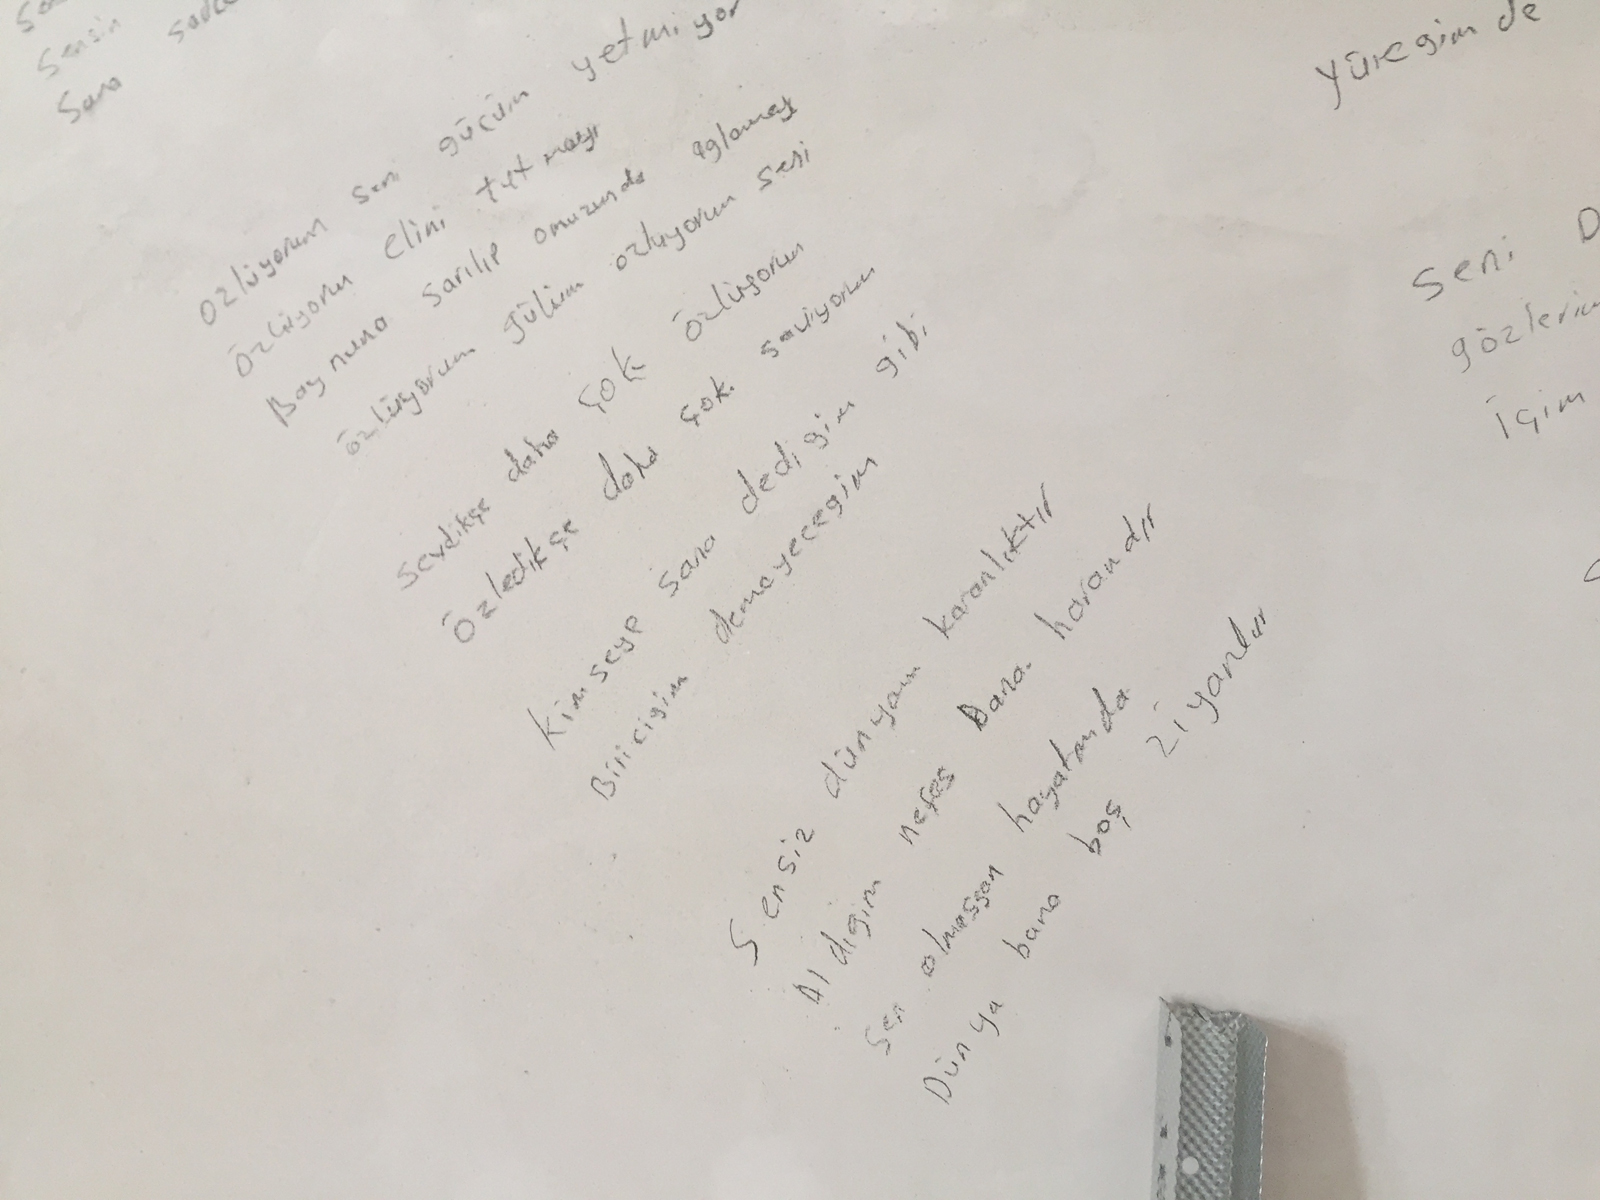 Sensin
Sana sadece
özlüyorum seni gücüm yetmiyor
Özlüyorum elini tutmayı
Boynuna sarılıp omuzunda aglamay
özlüyorum gülüm özlüyorum seni
sevdikçe daha çok özlüyorum
Özledikçe daha çok seviyorum
kimseye sana dedigim gibi
Biricigim demeyecegim
Sensiz dünyam karanlıktır
Aldigim nefes Bana haramdır
Sen olmassan hayatımda
Dünya bana boş ziyandır
yüregimde
Seni
gözlerim
İçim